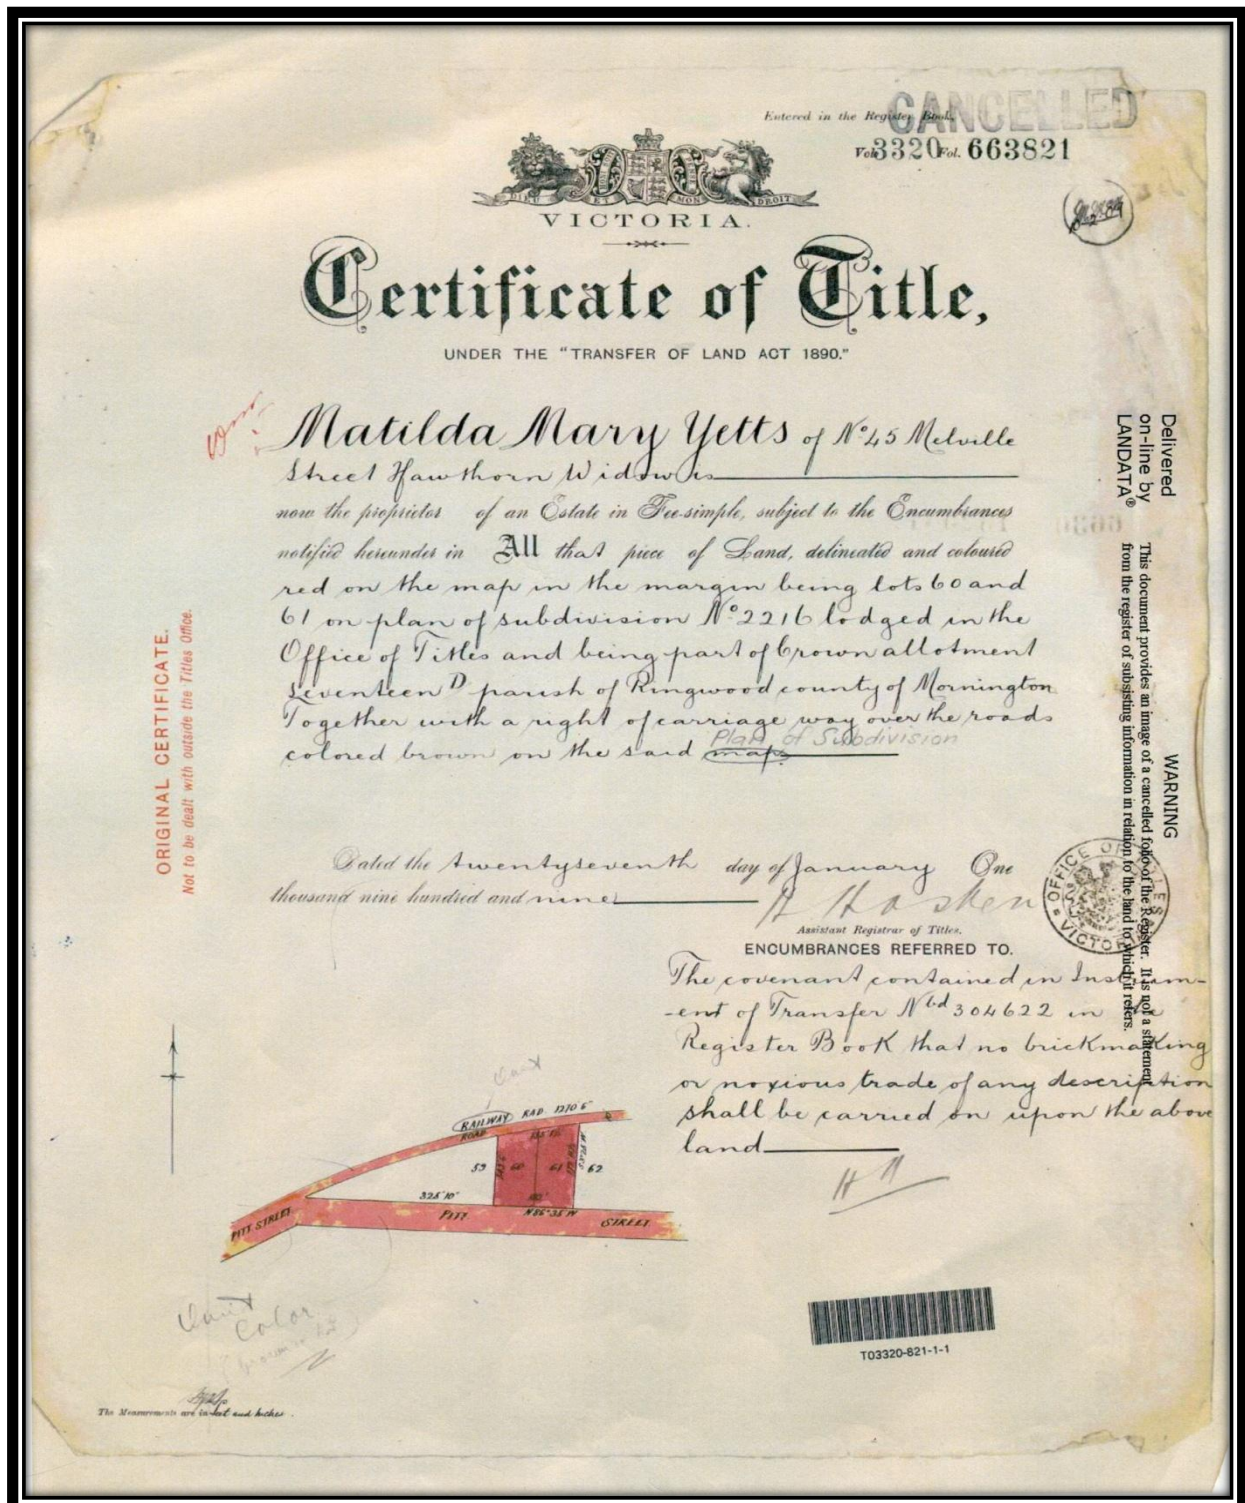 CANCELLED
Entered in the Register Book,
Vol. 3320 Fol. 663821
DIEU ET MON DROIT
VICTORIA.
Certificate of Title,
UNDER THE "TRANSFER OF LAND ACT 1890."
Matilda Mary Yetts of No 45 Melville
Street Hawthorn Widow is
now the proprietor of an Estate in Fee-simple, subject to the Encumbrances
notified hereunder in All that piece of Land, delineated and coloured
red on the map in the margin being lots 60 and
61 on plan of subdivision No 2216 lodged in the
Office of Titles and being part of Crown allotment
seventeen D parish of Ringwood county of Mornington
Together with a right of carriage way over the roads
colored brown on the said map
Plan of Subdivision
Dated the twentyseventh day of January One
thousand nine hundred and nine
Assistant Registrar of Titles.
OFFICE OF TITLES
VICTORIA
ENCUMBRANCES REFERRED TO.
The covenant contained in Instrum-
-ent of Transfer Nbd 304622 in the
Register Book that no brickmaking
or noxious trade of any description
shall be carried on upon the above
land
ORIGINAL CERTIFICATE.
Not to be dealt with outside the Titles Office.
Delivered
on-line by
LANDATA®
WARNING
This document provides an image of a cancelled folio of the Register. It is not a statement
from the register of subsisting information in relation to the land to which it refers.
RAILWAY RAD 1270 6"
ROAD
59 60 61 62
325' 10"
N 86° 35' W
PITT STREET
PITT STREET
Color
T03320-821-1-1
The Measurements are in feet and inches.